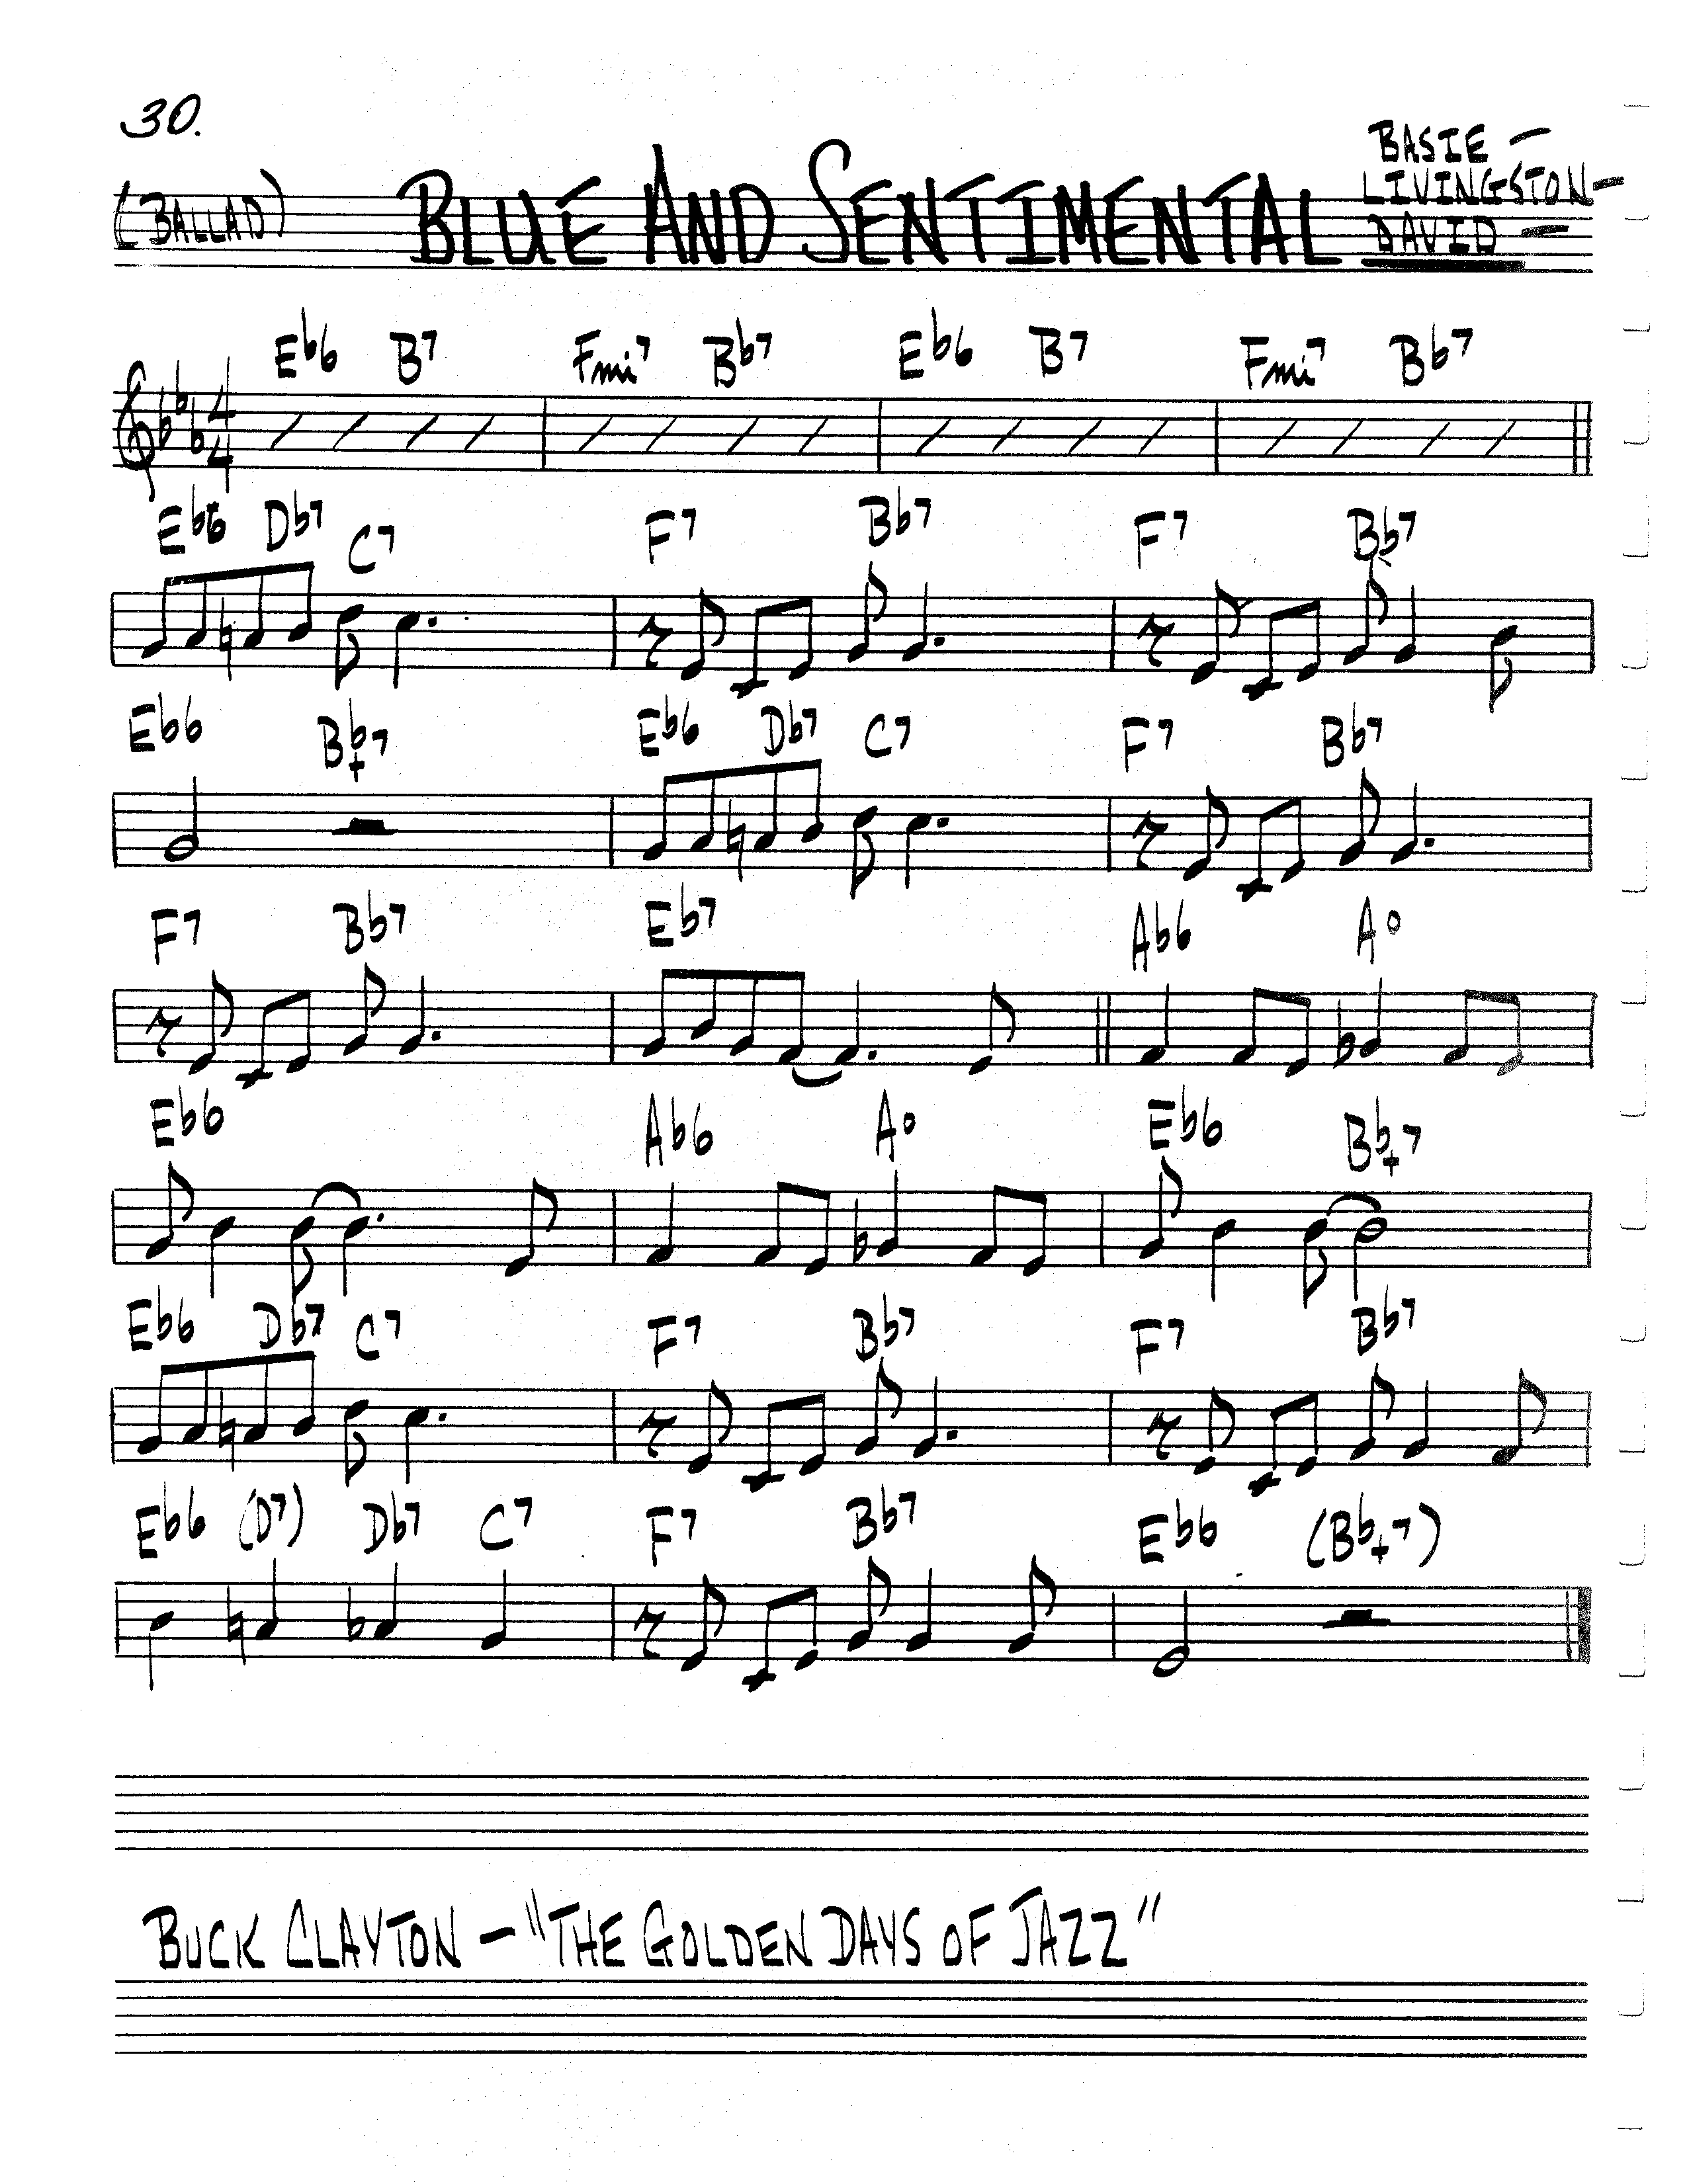 30.
(BALLAD) BLUE AND SENTIMENTAL BASIE -
LIVINGSTON -
DAVID -
4
4
Eb6 B7 Fmi7 Bb7 Eb6 B7 Fmi7 Bb7
Eb6 Db7 C7 F7 Bb7 F7 Bb7
Eb6 Bb+7 Eb6 Db7 C7 F7 Bb7
F7 Bb7 Eb7 Ab6 Ao
Eb6 Ab6 Ao Eb6 Bb+7
Eb6 Db7 C7 F7 Bb7 F7 Bb7
Eb6 (D7) Db7 C7 F7 Bb7 Eb6 (Bb+7)
BUCK CLAYTON - "THE GOLDEN DAYS OF JAZZ"